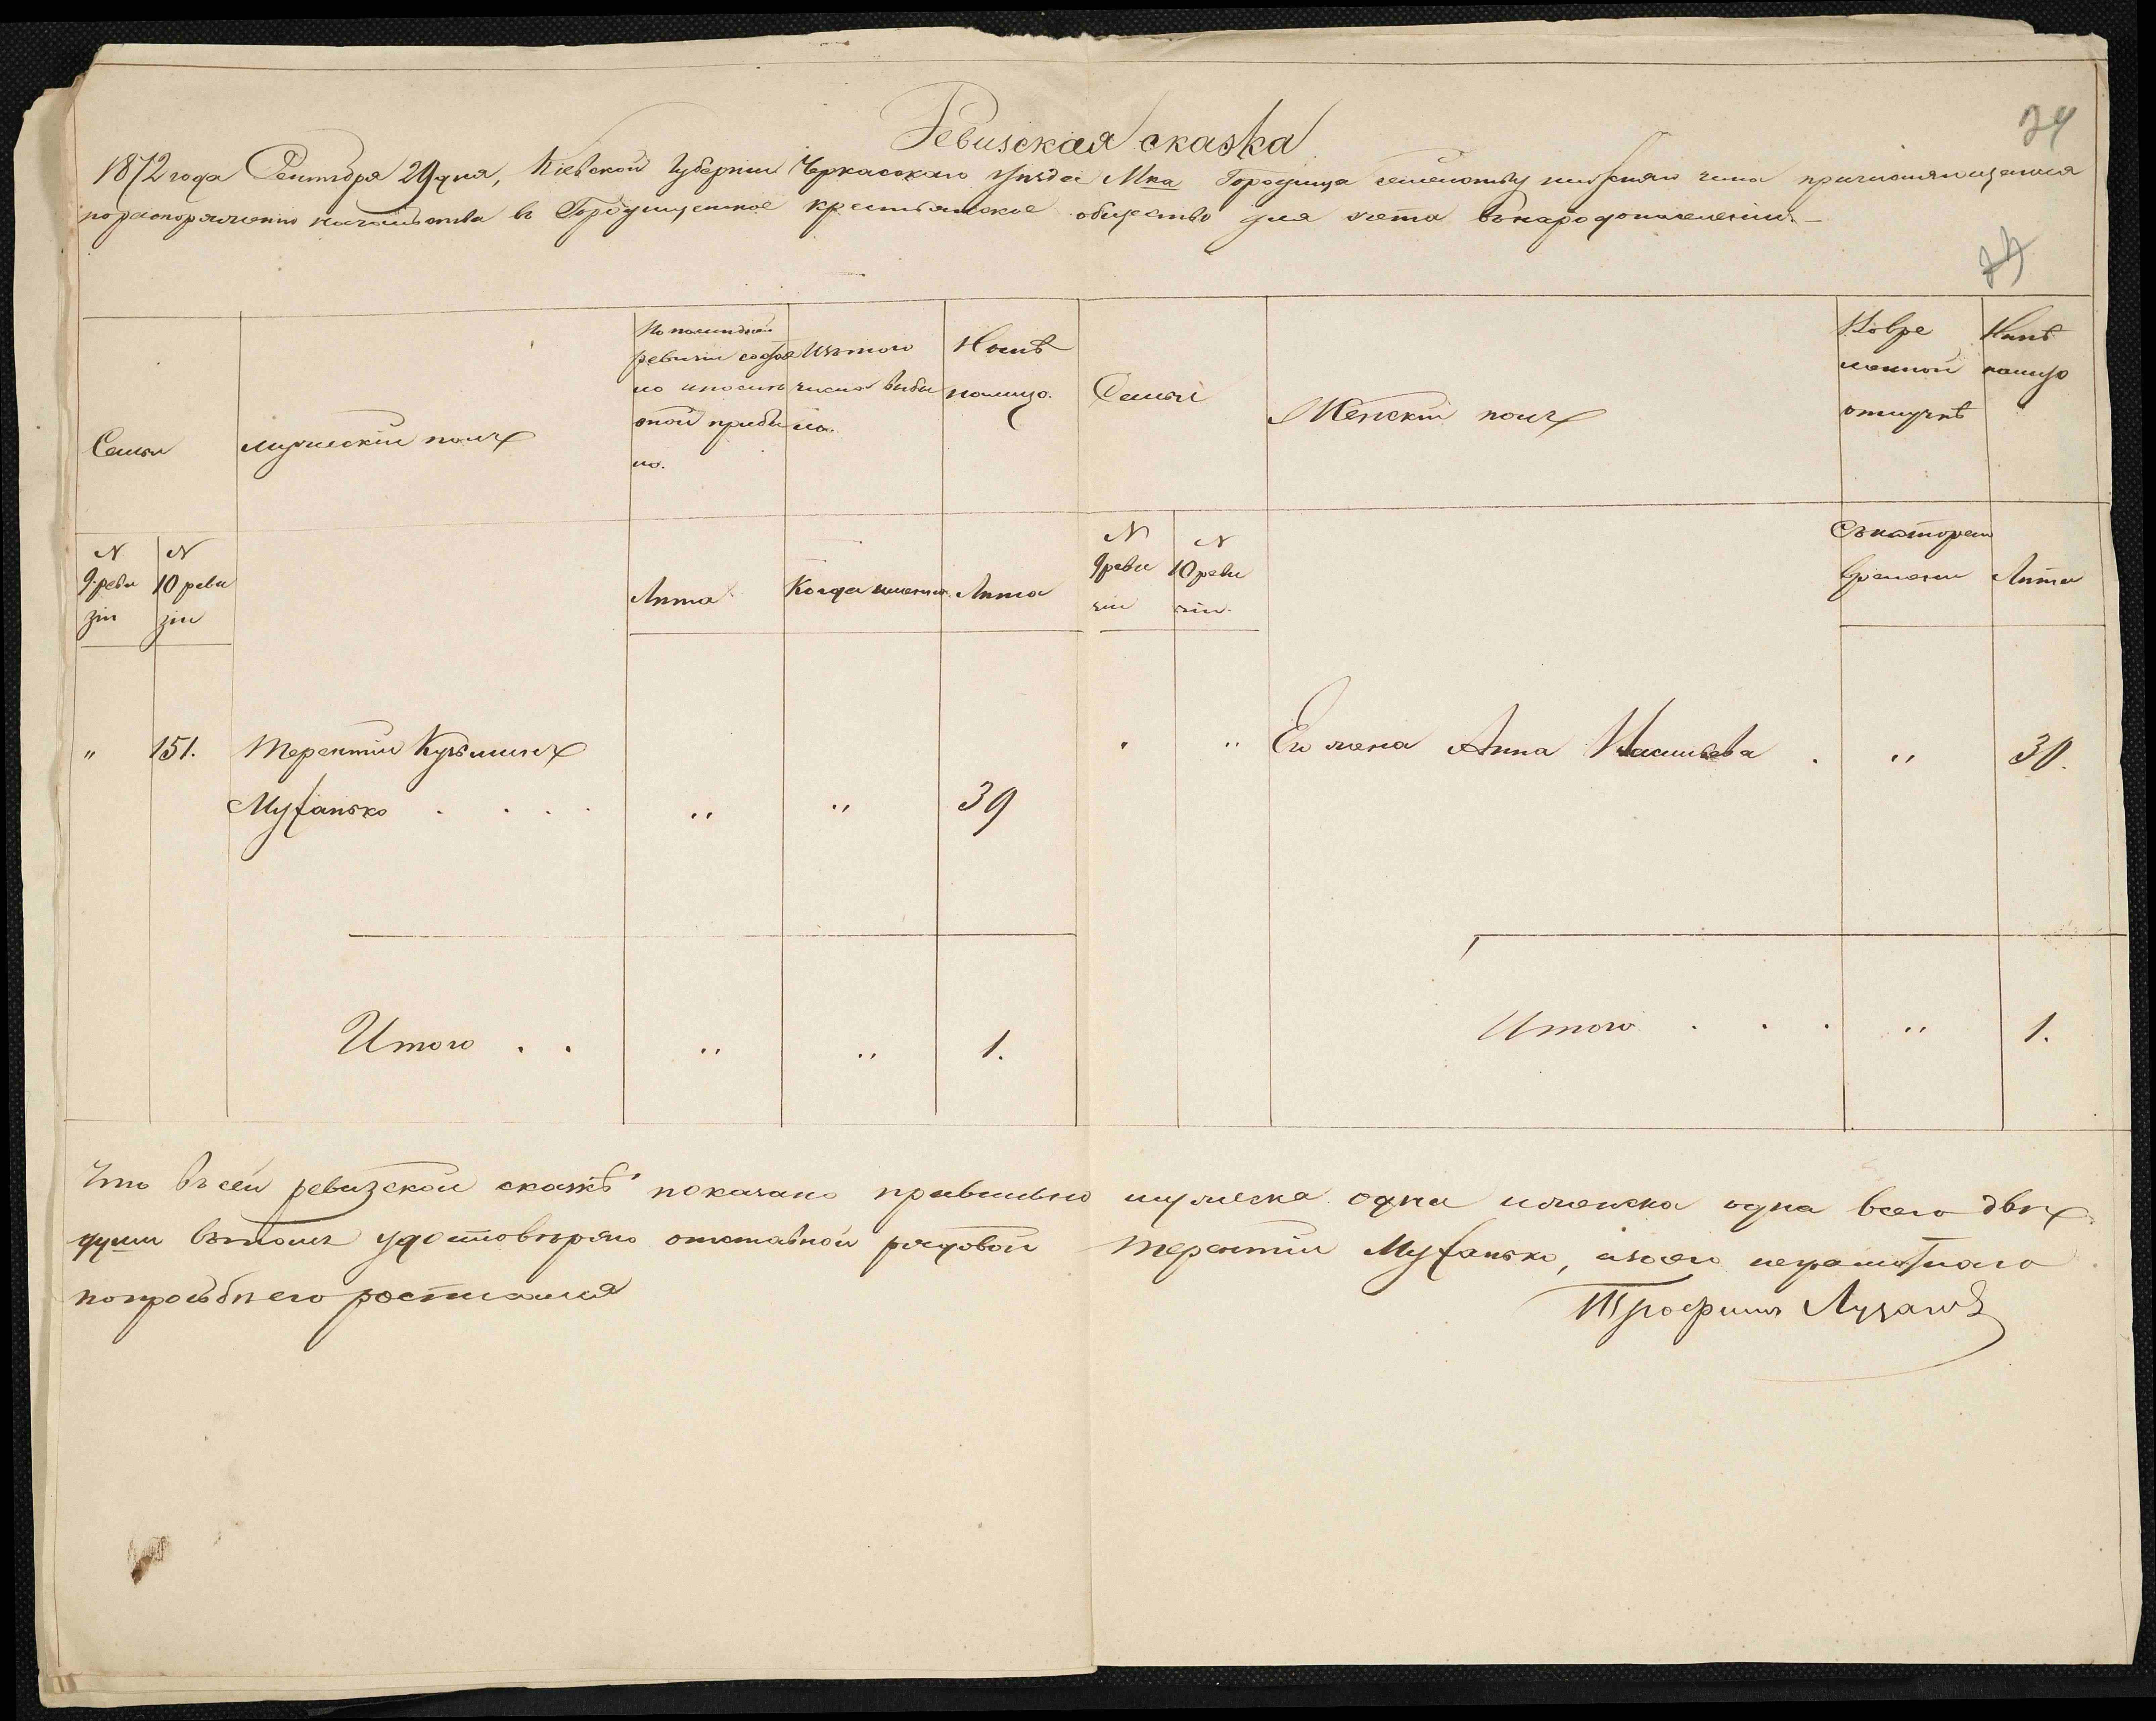 Ревизская сказка
24
1872 года Сентября 29 дня, Кіевской Губерніи Черкасскаго уѣзда Мка Городища семейству нижняго чина причисляющагося
по распоряженію начальства въ Городищенское крестьянское общество для счета въ народонаселеніи
Семьи
мужескій полъ
По послѣдней
ревизіи состоя
ло и после
оной прибы
ло.
Изъ того
числа выбы
ло.
Нынѣ
налицо.
Семьи
Женскій полъ
Во вре
менной
отлучкѣ
Нынѣ
налицо
N
9 реви
зіи
N
10 реви
зіи
Лѣта
Когда именно.
Лѣта
N
9 реви
зіи
N
10 реви
зіи.
Съ котораго
времени
Лѣта
" 151. Терентій Кузьминъ
Мусанько . . . . " " 39
" " Его жена Анна . " 30.
Итого . . " " 1.
Итого . . . " 1.
Что въ сей ревизской сказкѣ показано правильно мужеска одна и женска одна всего двѣ
души въ томъ удостовѣряю отставной рядовой Терентій Мусанько, а за него неграмотнаго
по просьбѣ его росписался
Трофимъ